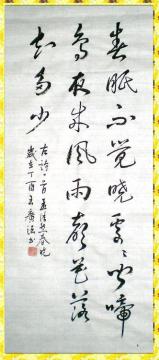 春眠不觉晓处々闻啼
鸟夜来风雨声花落
知多少
古诗一首孟浩然春晓
岁在丁酉